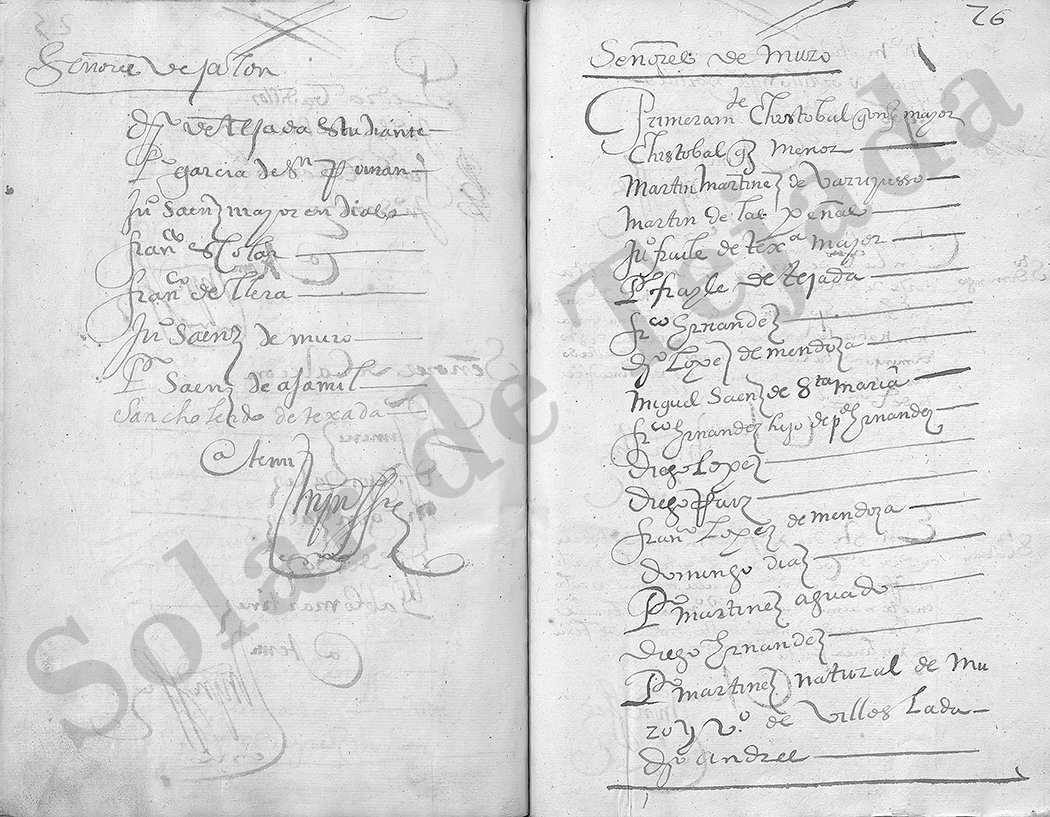 Señores de Jalon
Dº de Tejada estudiante
P.º garcia de Sn Roman
Juº Saenz mayor en dias
franco escolar
franco de llera
Juº Saenz de muro
P.º Saenz de ajamil
Sancho de texada
Ante mi
26
Señores de Muro
Primeramte Christobal gonz mayor
Christobal gz menor
Martin Martinez de
Martin de las peñas
Juº fraile de texa mayor
P.º frayle de tejada
frco Hrnandez
Dº Lopez de mendoza
Miguel Saenz de Sta maria
frco Hrnandez hijo de po Hrnandez
Diego Lopez
Diego Ruiz
franco Lopez de mendoza
domingo diaz
P.º martinez aguado
Diego Hrnandez
P.º martinez natural de Mu
ro y vº de Villos lada
Dº andres
Solar de Tejada